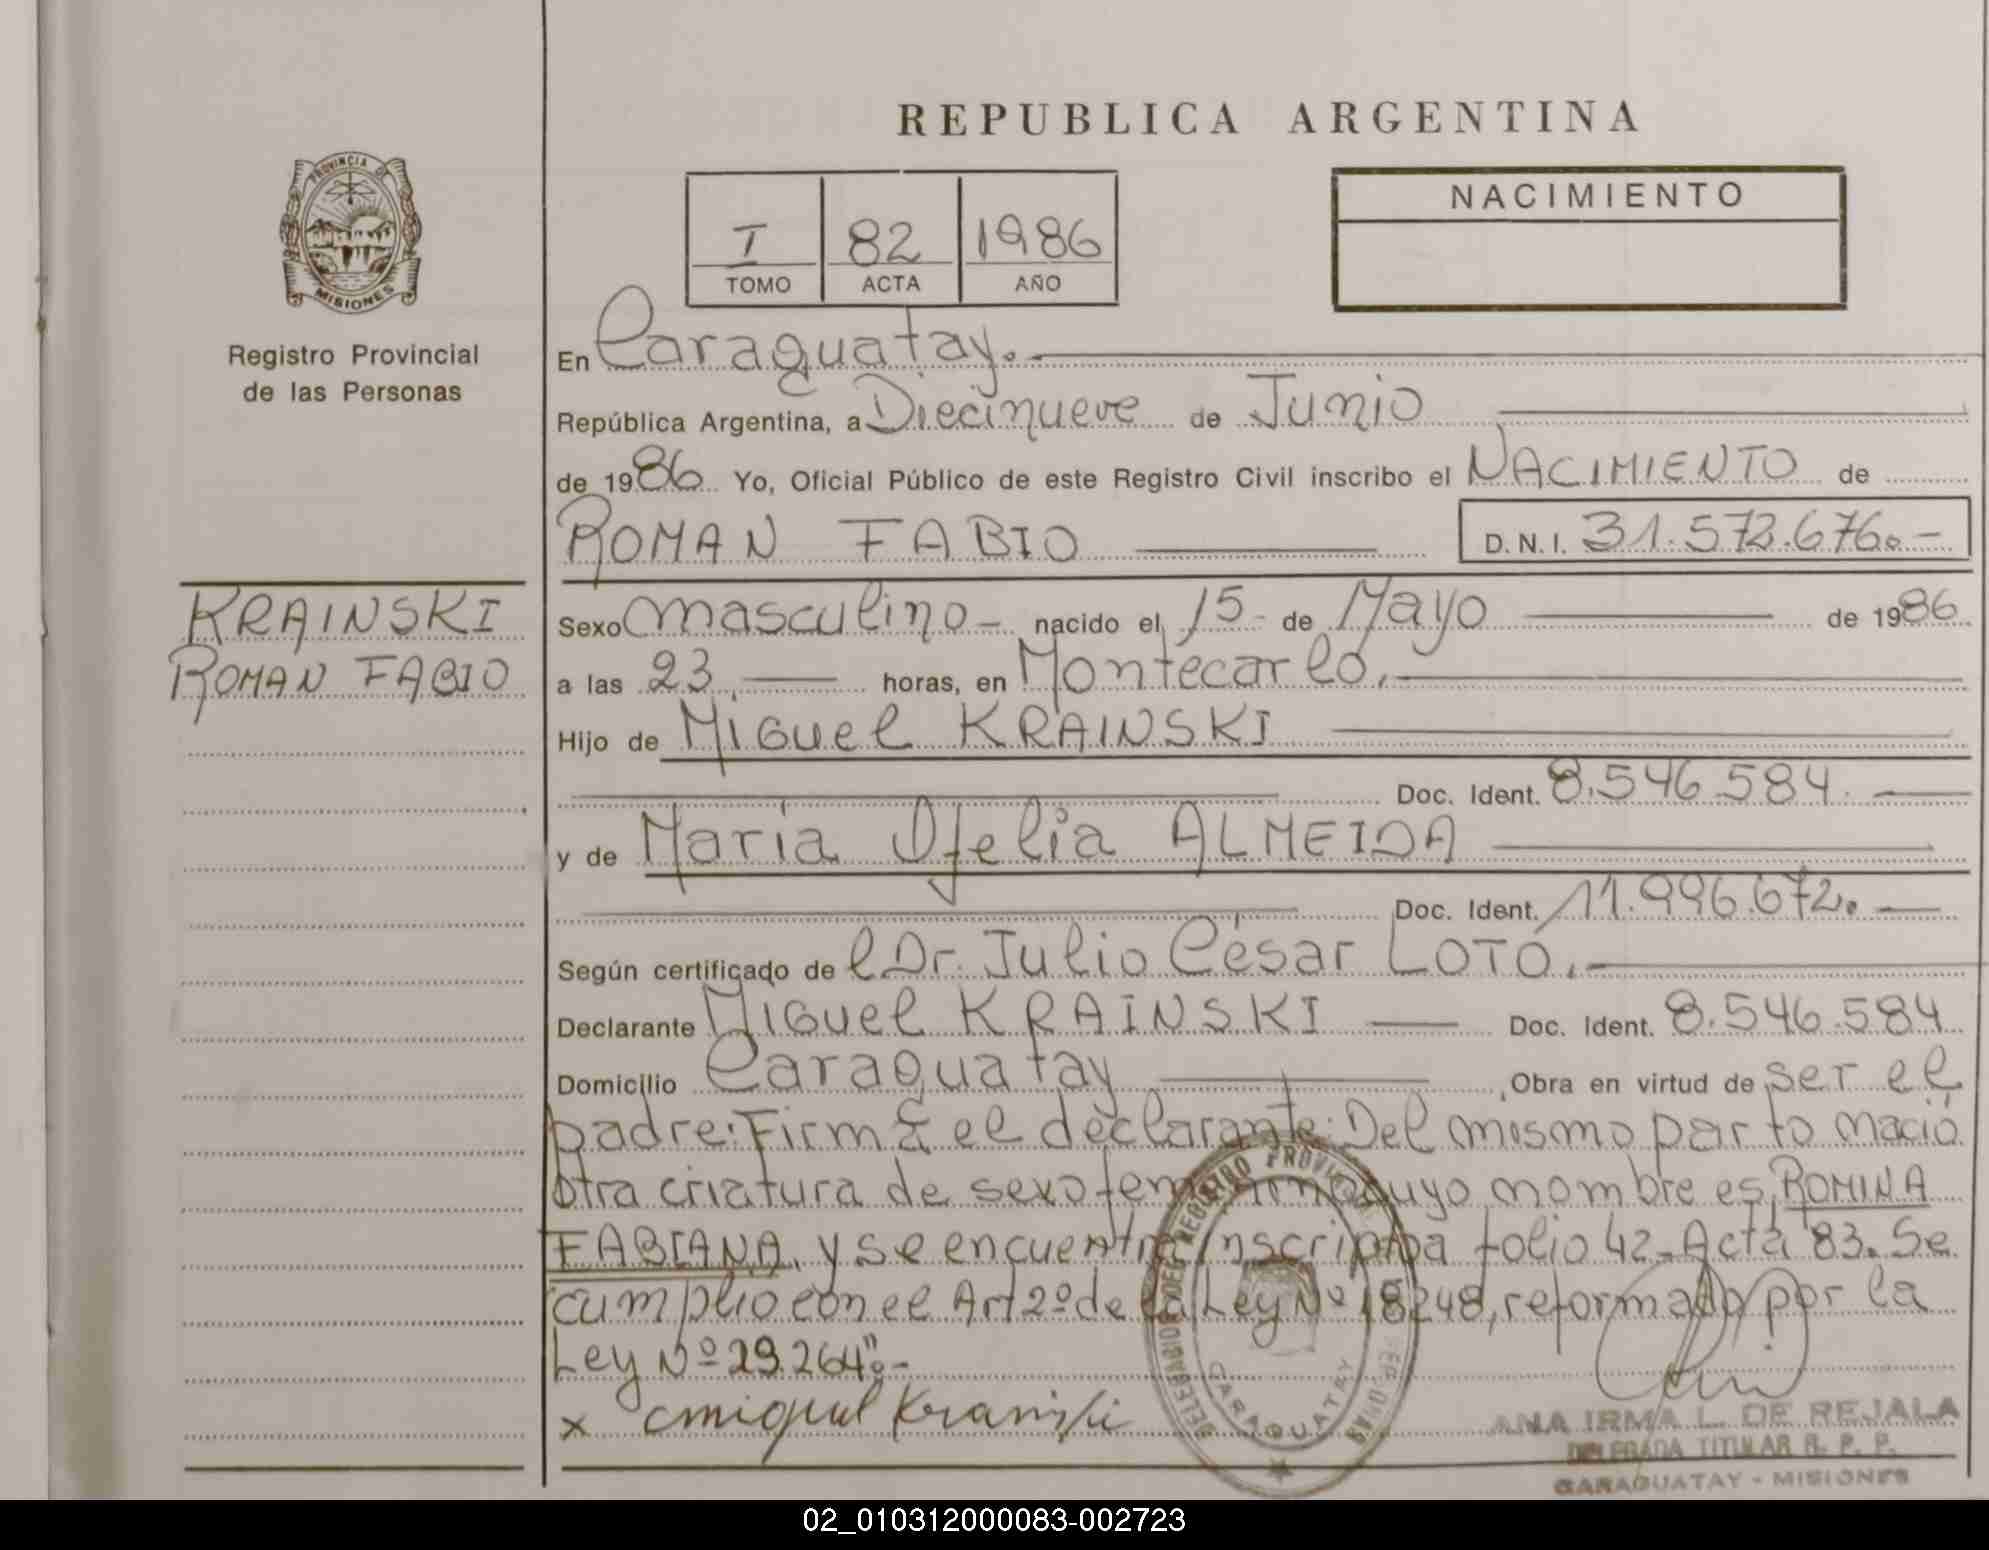 REPUBLICA ARGENTINA
PROVINCIA DE
MISIONES
Registro Provincial
de las Personas
I 82 1986
TOMO ACTA AÑO
NACIMIENTO
En Caraguatay.-
República Argentina, a Diecinueve de Junio
de 1986 Yo, Oficial Público de este Registro Civil inscribo el NACIMIENTO de
ROMAN FABIO D.N.I. 31.573.676.-
KRAINSKI
ROMAN FABIO
Sexo masculino- nacido el 15- de Mayo de 1986
a las 23,— horas, en Montecarlo.
Hijo de Miguel KRAINSKI
Doc. Ident. 8.546.584.
y de María Ofelia ALMEIDA
Doc. Ident. 11.996.672.
Según certificado de el Dr. Julio César LOTO.
Declarante Miguel KRAINSKI Doc. Ident. 8.546.584
Domicilio Caraguatay Obra en virtud de ser el
padre: Firma el declarante: Del mismo parto nació
otra criatura de sexo femenino cuyo nombre es ROMINA
FABIANA, y se encuentra inscripta folio 42-Acta 83. Se
cumplio con el Art 2º de la Ley Nº 18248, reformado por la
Ley Nº 23.264".-
x Miguel Krainski
DELEGACION DEL REGISTRO PROVINCIAL
CARAGUATAY
ANA IRMA L. DE REJALA
DELEGADA TITULAR R. P. P.
CARAGUATAY - MISIONES
02_010312000083-002723